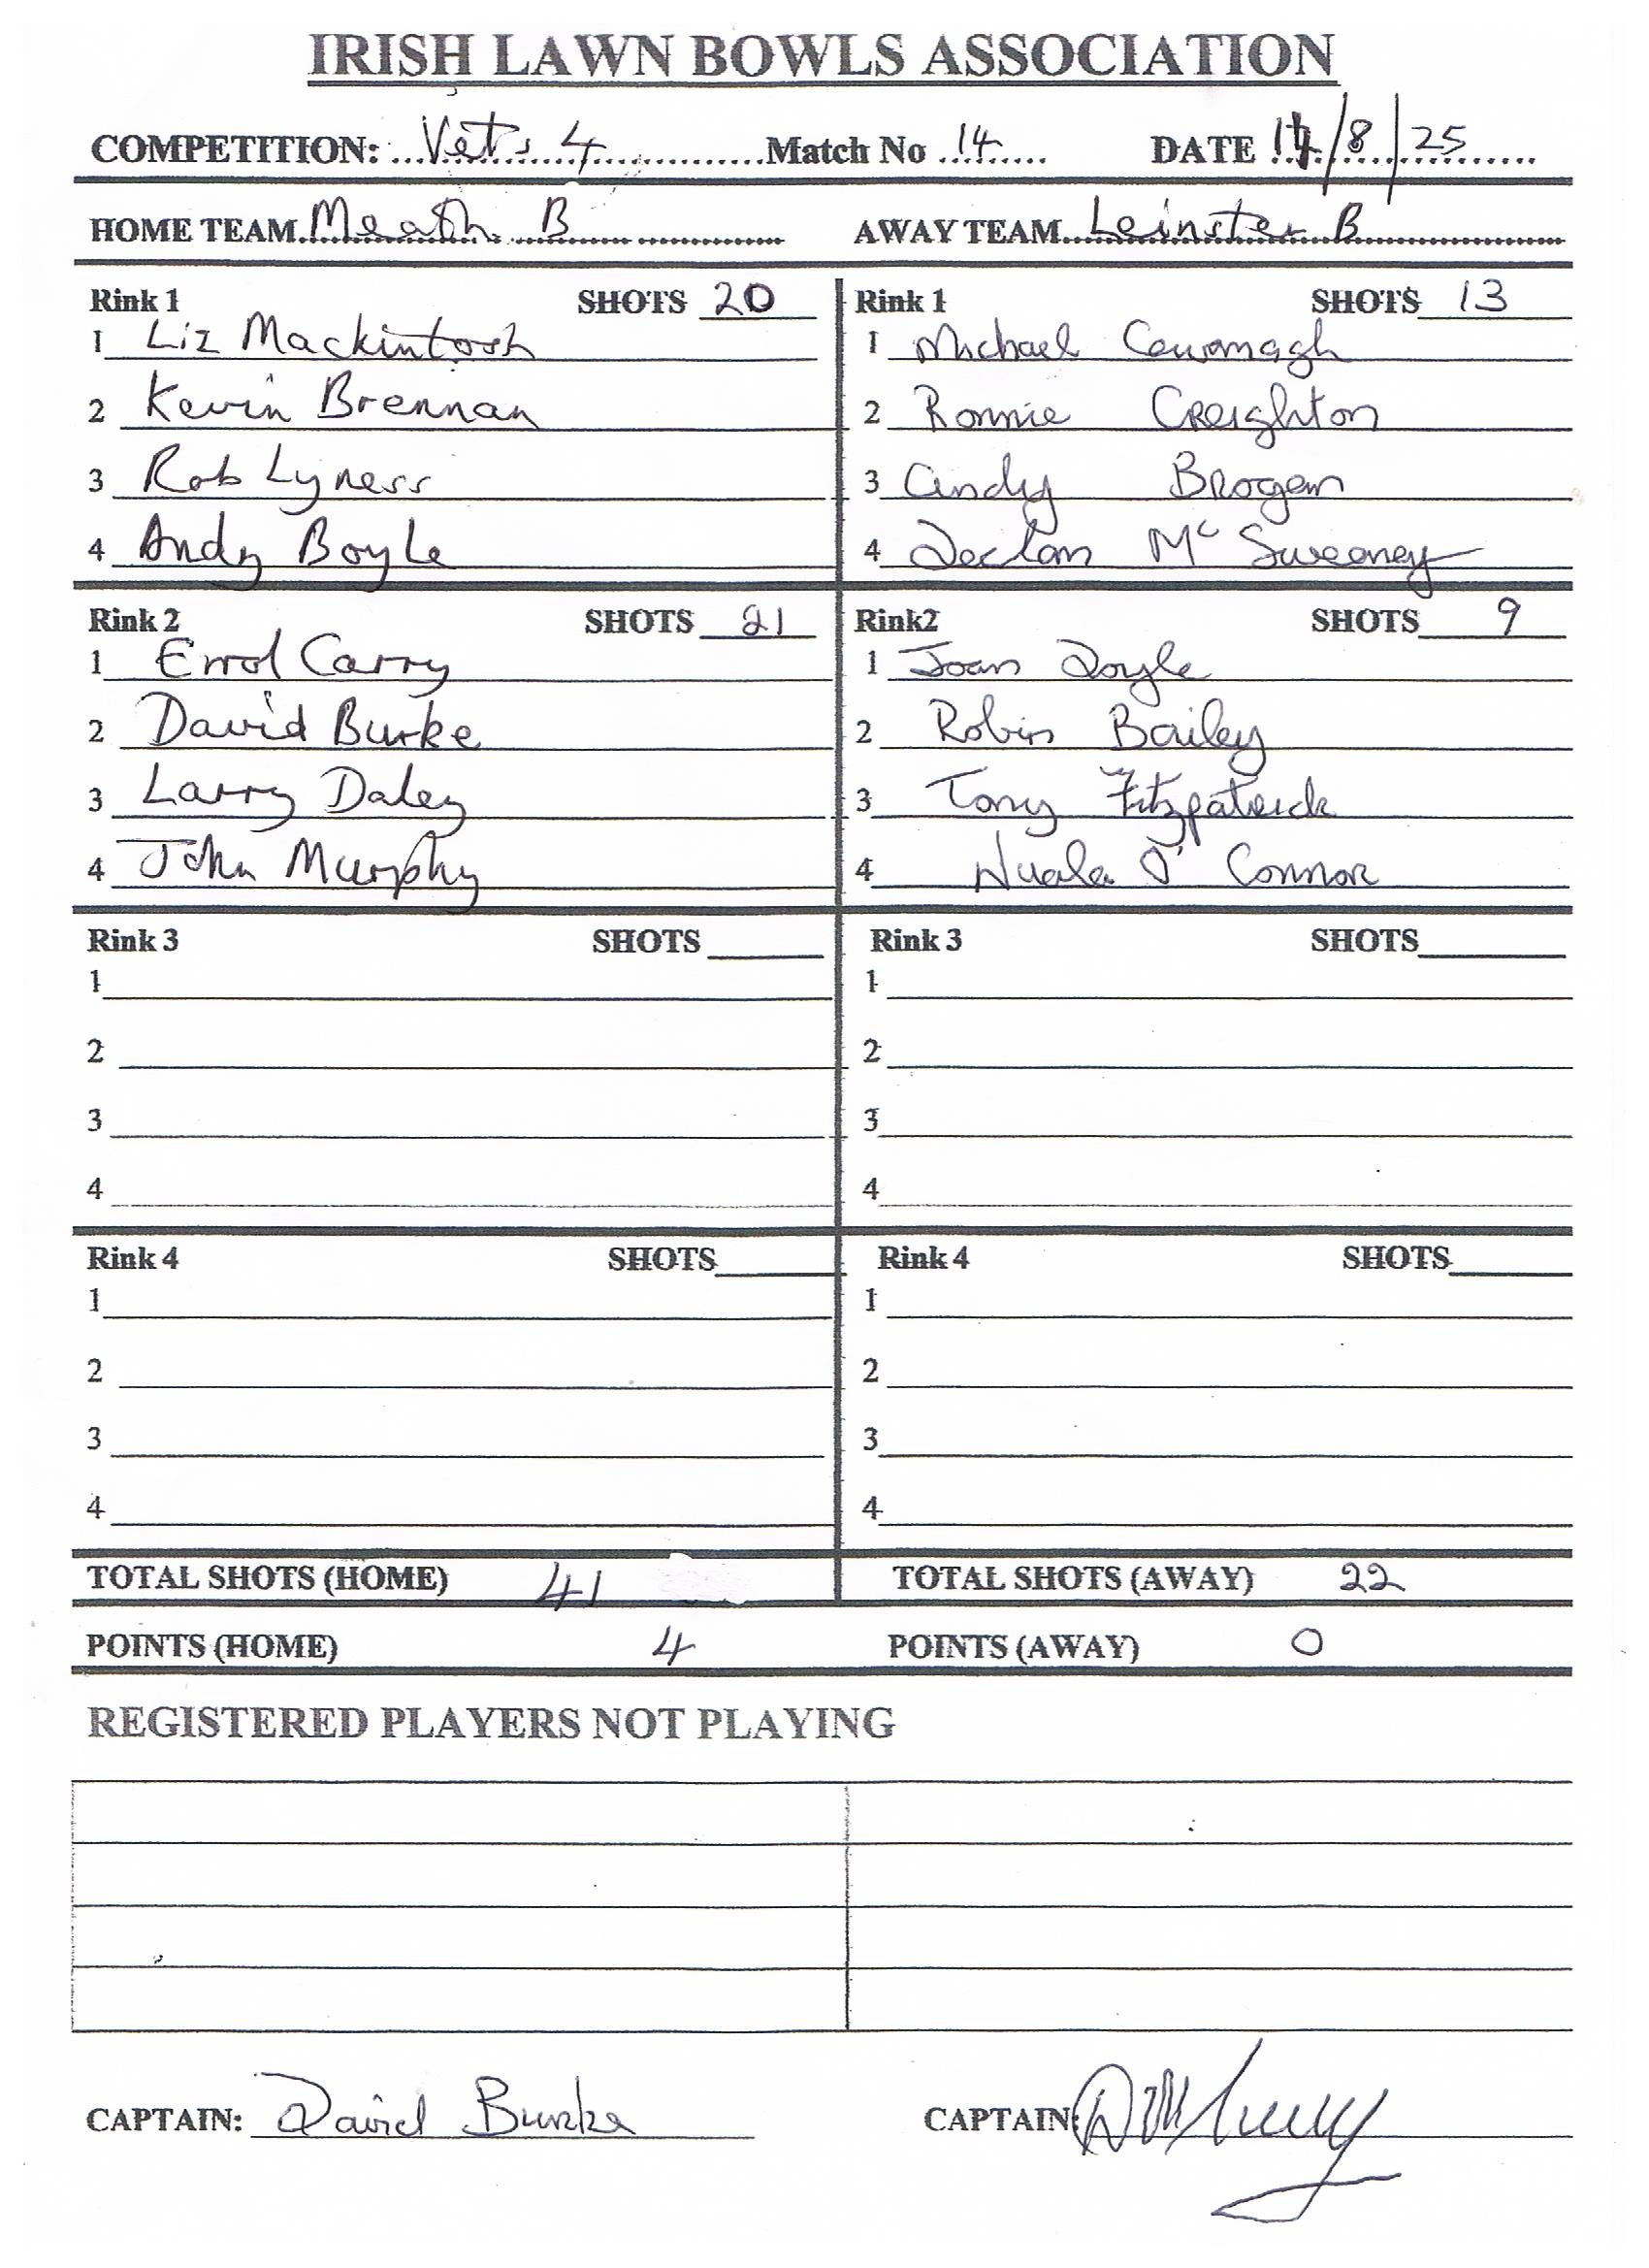 IRISH LAWN BOWLS ASSOCIATION
COMPETITION: Vets 4 Match No 14 DATE 14/8/25
HOME TEAM Meath B AWAY TEAM Leinster B
Rink 1 SHOTS 20 Rink 1 SHOTS 13
1 Liz Mackintosh 1 Michael Cavanagh
2 Kevin Brennan 2 Ronnie Creighton
3 Rob Lyness 3 Andy Brogan
4 Andy Boyle 4 Declan Mc Sweeney
Rink 2 SHOTS 21 Rink2 SHOTS 9
1 Errol Carry 1 Joan Doyle
2 David Burke 2 Robin Bailey
3 Larry Daley 3 Tony Fitzpatrick
4 John Murphy 4 Nuala O' Connor
Rink 3 SHOTS Rink 3 SHOTS
1 1
2 2
3 3
4 4
Rink 4 SHOTS Rink 4 SHOTS
1 1
2 2
3 3
4 4
TOTAL SHOTS (HOME) 41 TOTAL SHOTS (AWAY) 22
POINTS (HOME) 4 POINTS (AWAY) 0
REGISTERED PLAYERS NOT PLAYING
CAPTAIN: David Burke CAPTAIN: